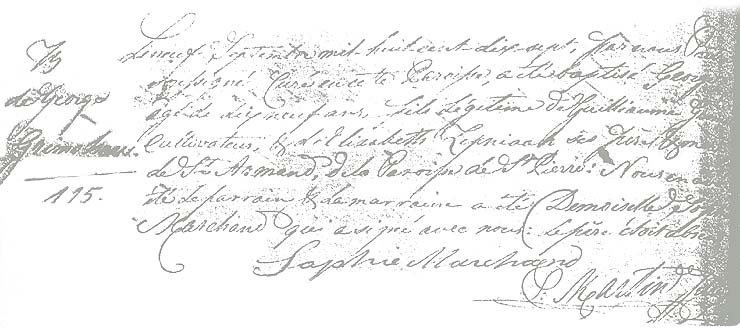 B
de George
115.
Le neuf Septembre mil-huit-cent-dix-sept, par nous
soussigné Curé de cette Paroisse, a été baptisé Georg
âgé de dix neuf ans, fils légitime de Guillaume
Cultivateur, & d'Elisabeth ses Père & 
de St Armand, de la Paroisse de St Pierre: Nous
été le parrain & la marraine a été Demoiselle
Marchand qui a signé avec nous: le père étoit
Sophie Marchand
P. Martin